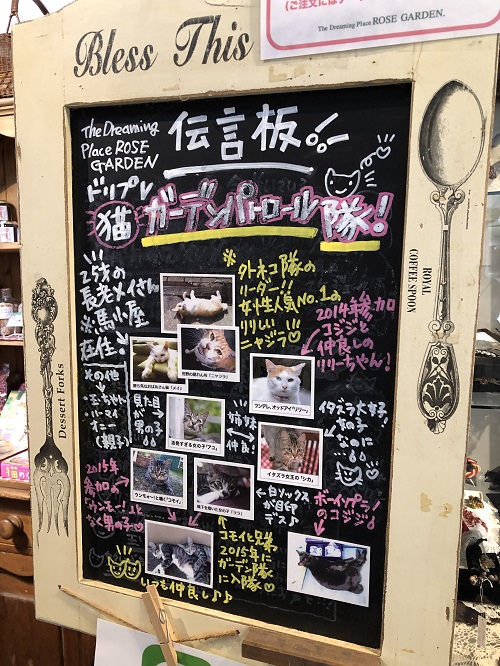 (ご注文には
The Dreaming Place ROSE GARDEN.
Bless This
The Dreaming
Place ROSE
GARDEN
伝言板!!
ドリプレ
猫ガーデンパトロール隊!
25才の
長老メイさん
※馬小屋
在住!
外ネコ隊の
リーダー!!
女性人気No.1の
りりしい
ニャジラ♡
2014年参加
コジジと
仲良しの
リリーちゃん!
その他
モモちゃん
ハーマイ
オニー
(親子)
見た目
が男の子
姉妹
仲良し!
イタズラ大好き
女の子
なのに…
活発すぎる女の子「アコ」
ツンデレ、オッドアイ「リリー」
イタズラ女王の「シカ」
2015年
参加の
「ウンモォー!」と
なく男の子♡
ウンモォーと鳴く「コモイ」
←白ソックス
が目印
デス♪
ボーイッフ゜ノ
のコジジ
コモイと兄弟
2015年に
ガーデン隊
に入隊♡
いつも仲良し♪♪
Dessert Forks
ROYAL
COFFEE SPOON